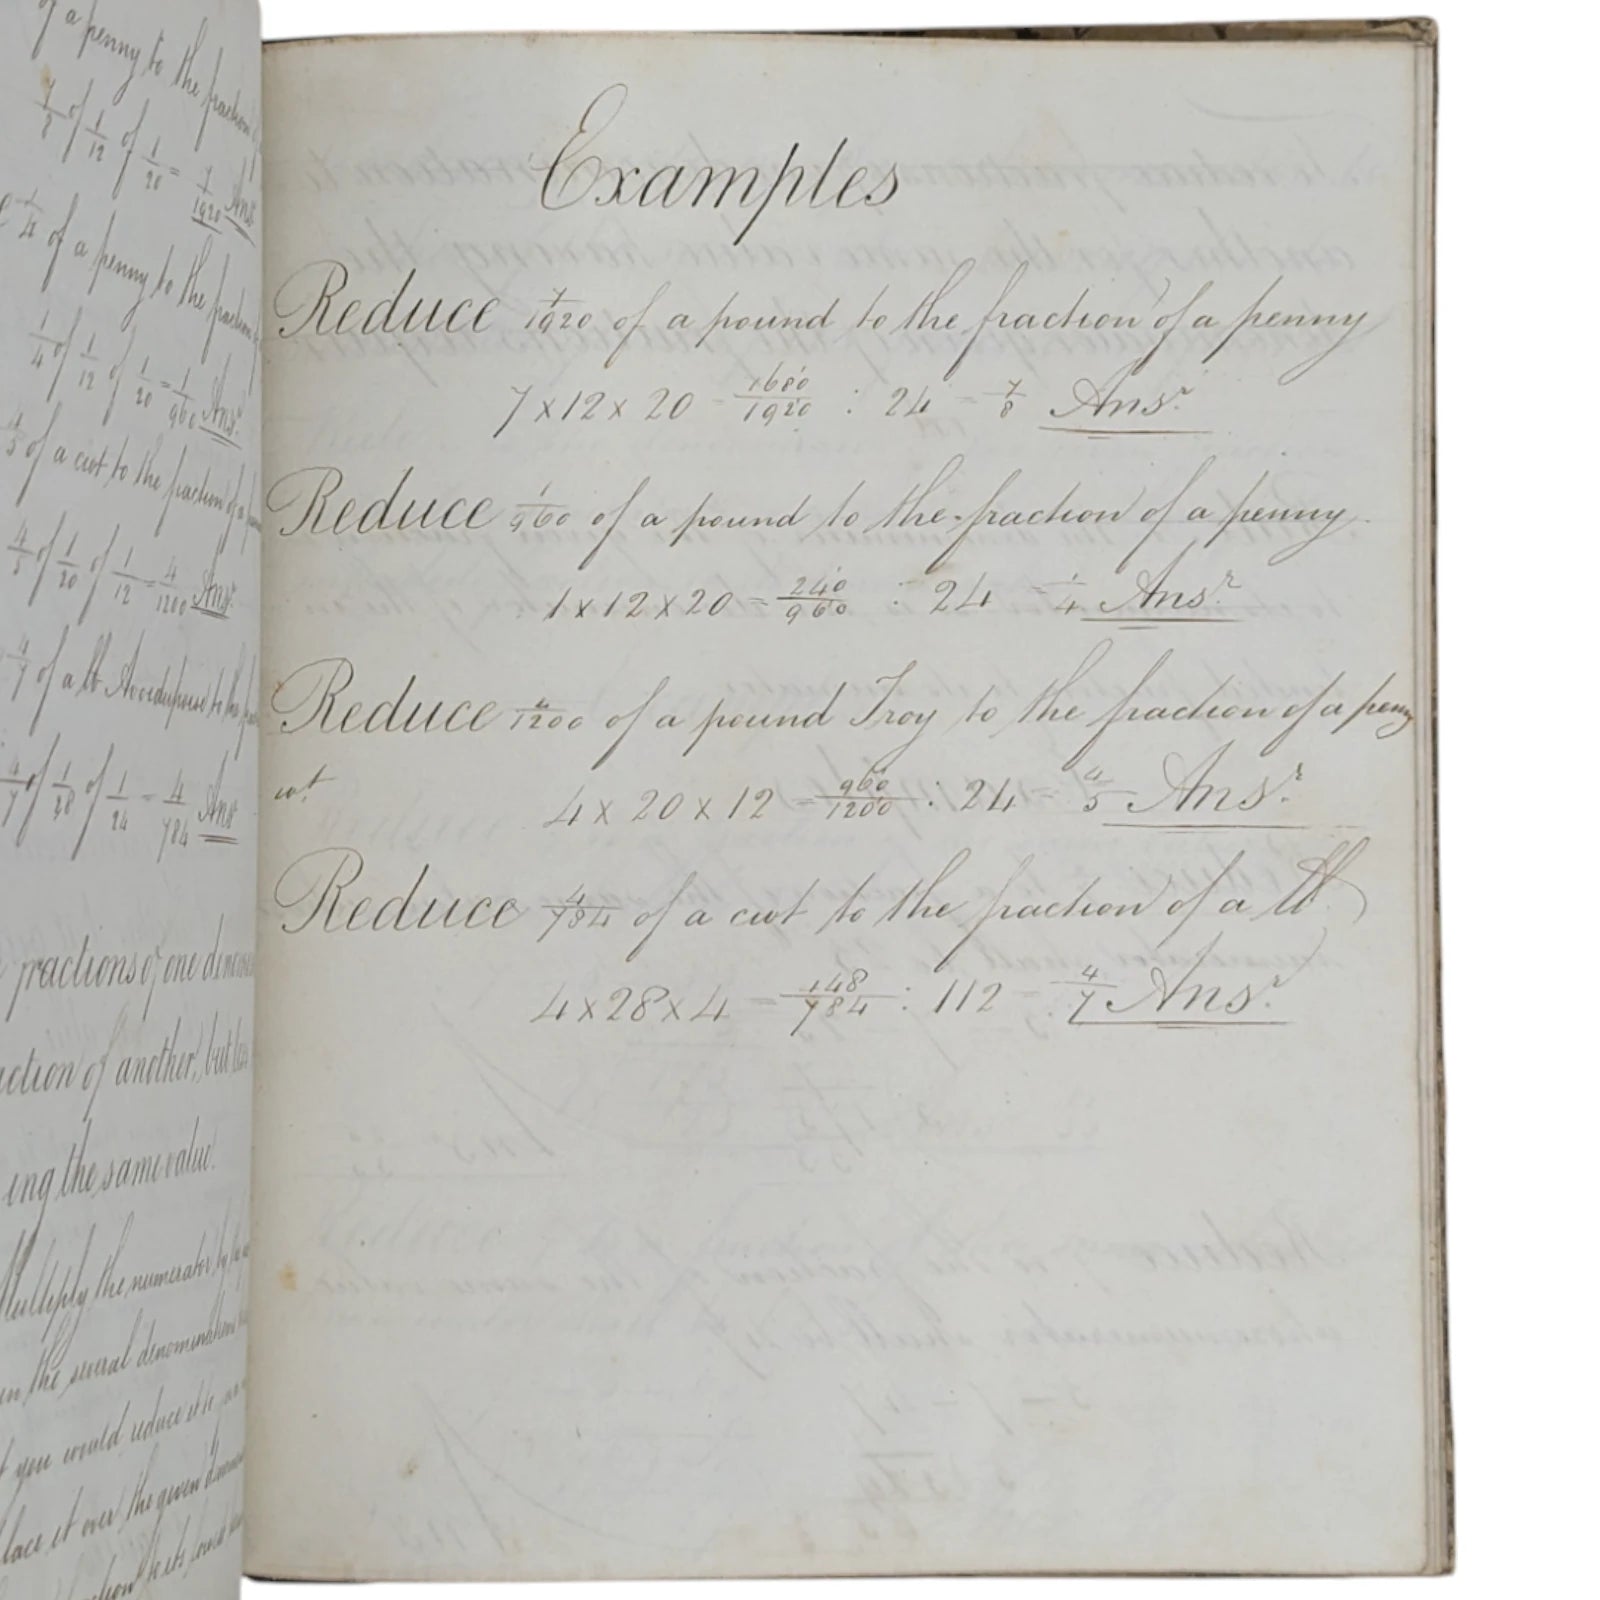 of a penny to the fraction
7/8 of 1/12 of 1/20 = 7/1920 Ansr
1/4 of a penny to the fraction
1/4 of 1/12 of 1/20 = 1/960 Ansr.
4/5 of a cwt to the fraction of a
4/5 of 1/20 of 1/12 = 4/1200 Ansr.
4/7 of a lb Avoirdupoise to the
4/7 of 1/28 of 1/24 = 4/784 Ansr
fractions of one
of another, but
ing the same value.
Multiply the numerator by
the several denominations
you would reduce it to
lace it over the given
to its
Examples
Reduce 7/1920 of a pound to the fraction of a penny
7 x 12 x 20 = 1680/1920 : 24 = 7/8 Ansr.
Reduce 1/960 of a pound to the fraction of a penny.
1 x 12 x 20 = 240/960 : 24 = 1/4 Ansr.
Reduce 4/1200 of a pound Troy to the fraction of a penny
wt.
4 x 20 x 12 = 960/1200 : 24 = 4/5 Ansr.
Reduce 4/784 of a cwt to the fraction of a lb.
4 x 28 x 4 = 148/784 : 112 = 4/7 Ansr.